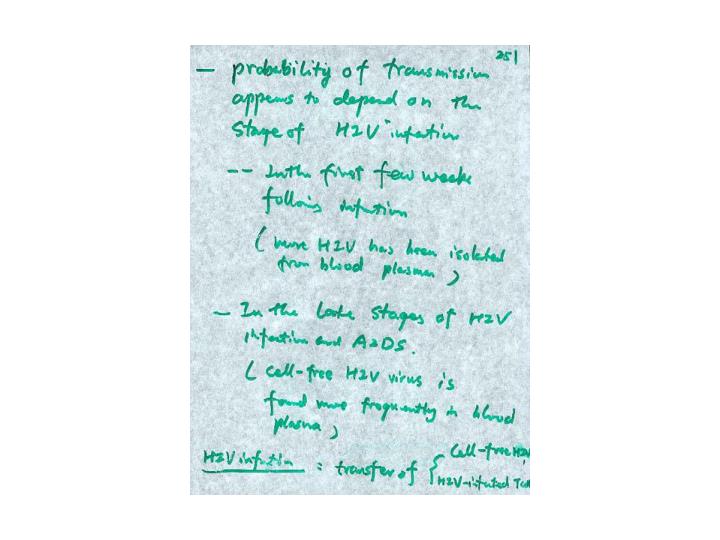 251
— probability of transmission
appears to depend on the
stage of HIV infection
-- In the first few weeks
following infection
( more HIV has been isolated
from blood plasma )
— In the late stages of HIV
infection and AIDS.
( cell-free HIV virus is
found more frequently in blood
plasma )
HIV infection : transfer of { cell-free HIV
HIV-infected T cell